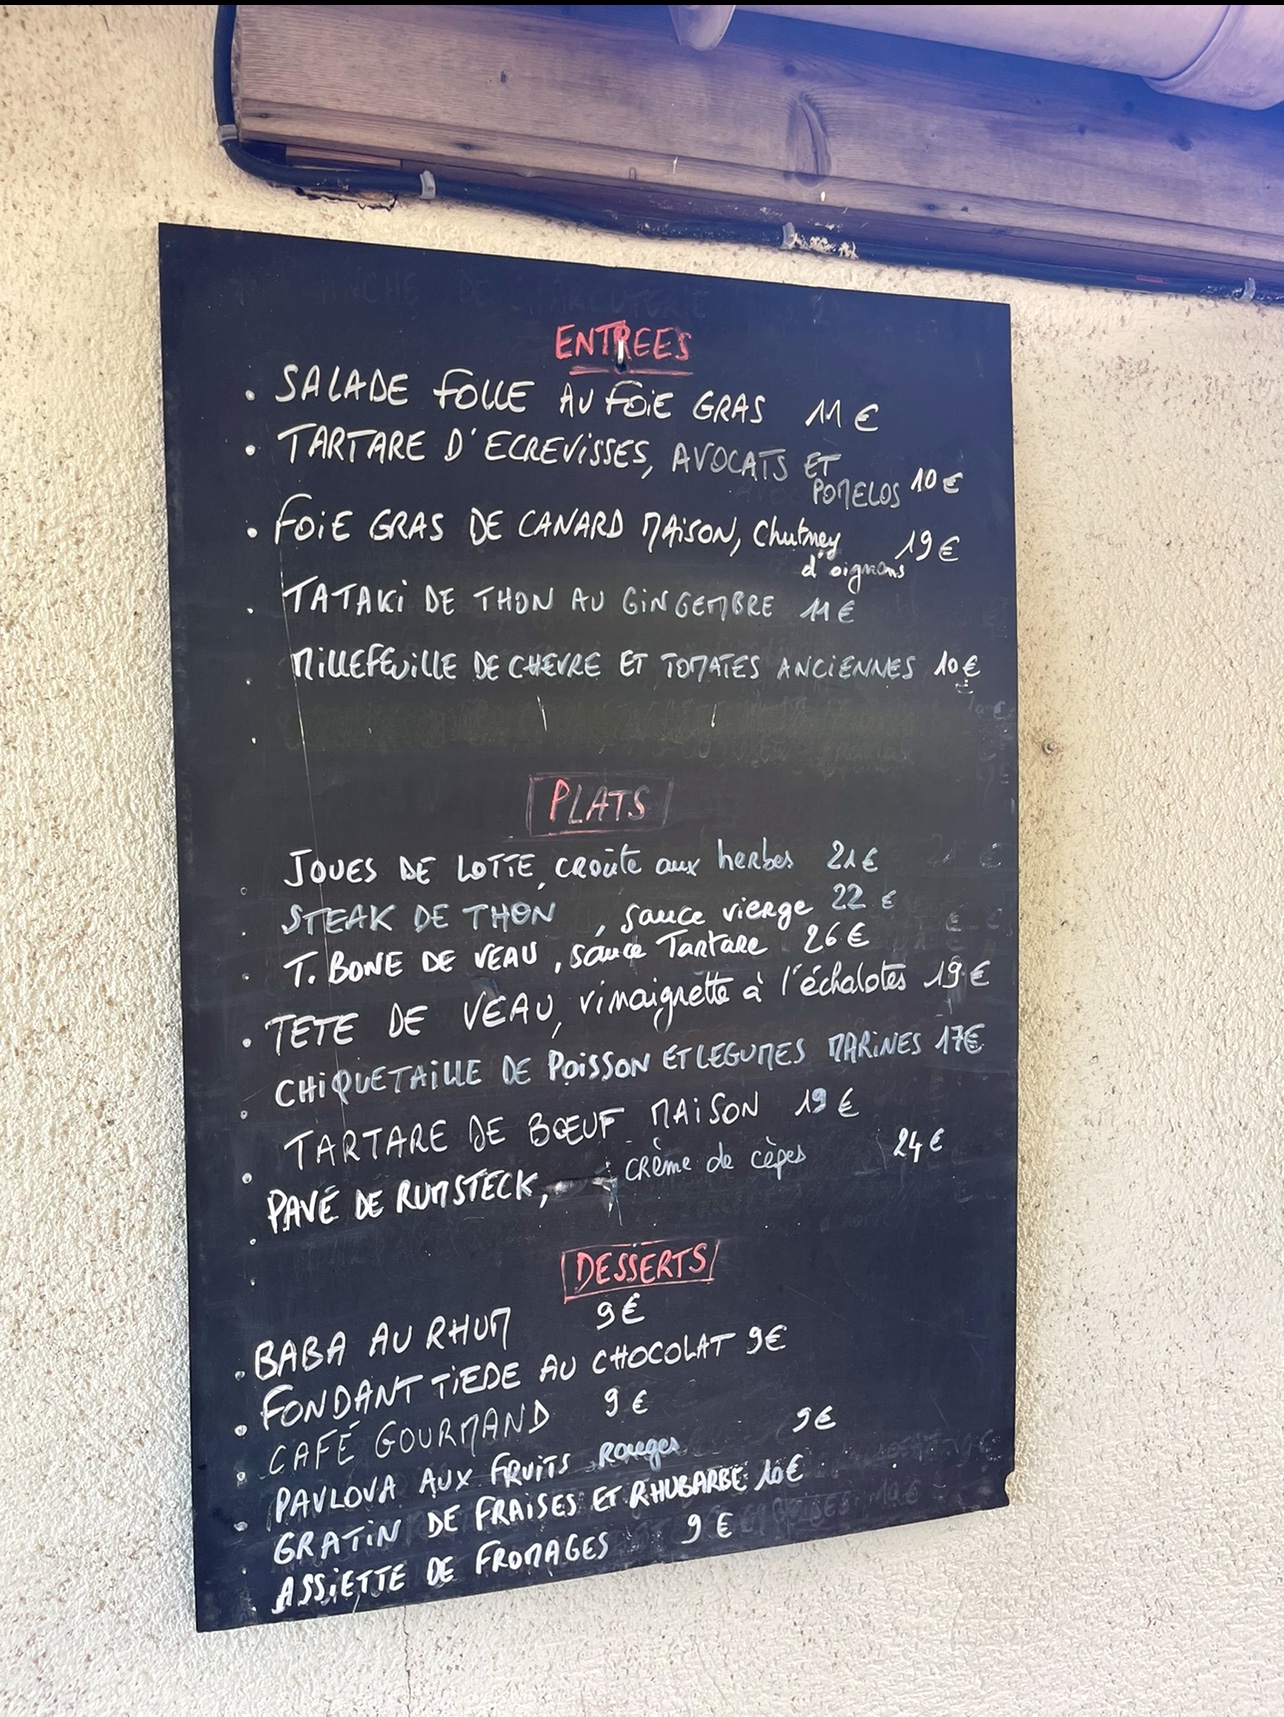 ENTREES
. SALADE FOLLE AU FOIE GRAS 11 €
. TARTARE D'ECREVISSES, AVOCATS ET
POMELOS 10 €
. FOIE GRAS DE CANARD MAISON, Chutney 19 €
d'oignons
. TATAKI DE THON AU GINGEMBRE 11 €
. MILLEFEUILLE DE CHEVRE ET TOMATES ANCIENNES 10 €
PLATS
. JOUES DE LOTTE, croûte aux herbes 21 €
. STEAK DE THON , sauce vierge 22 €
. T. BONE DE VEAU, sauce Tartare 26 €
. TETE DE VEAU, vinaigrette à l'échalotes 19 €
. CHIQUETAILLE DE POISSON ET LEGUMES MARINES 17€
. TARTARE DE BŒUF MAISON 19 €
. PAVÉ DE RUMSTECK, crème de cèpes 24 €
DESSERTS
. BABA AU RHUM 9 €
. FONDANT TIEDE AU CHOCOLAT 9€
. CAFÉ GOURMAND 9 €
. PAVLOVA AUX FRUITS Rouges 9€
. GRATIN DE FRAISES ET RHUBARBE 10€
. ASSIETTE DE FROMAGES 9 €